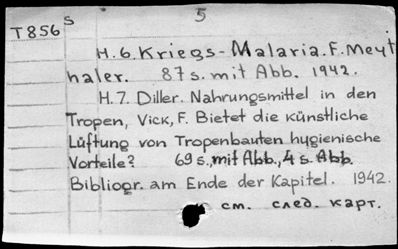 5
T856 s
H.6. Kriegs-Malaria. F. Meyt
haler. 87 s. mit Abb. 1942.
H.7. Diller. Nahrungsmittel in den
Tropen, Vick, F. Bietet die künstliche
Lüftung von Tropenbauten hygienische
Vorteile? 69 s. mit Abb., 4 s. Abb.
Bibliogr. am Ende der Kapitel. 1942.
см. след. карт.